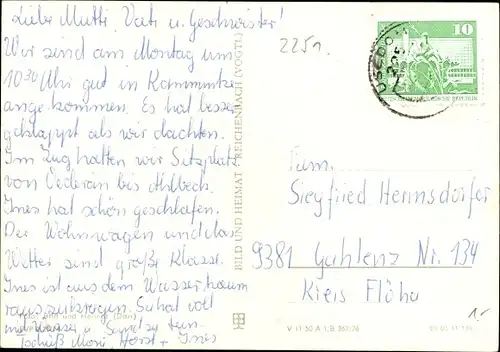 Liebe Mutti, Vati u. Geschwister!
Wir sind am Montag um
10³⁰ Uhr gut in Kamminke
angekommen. Es hat besser
geklappt als wir dachten.
Im Zug hatten wir Sitzplatz
von Oederan bis Ahlbeck.
Ines hat schön geschlafen.
Der Wohnwagen und das
Wetter sind große Klasse.
Ines ist aus dem Wasser kaum
rauszukriegen. Sie hat voll
mit Wasser u. Sand zu tun.
Tschüß Horst + Ines
BILD UND HEIMAT REICHENBACH (VOGTL)
V 11 50 A 1/B 367/76
2251
10
USEDOM
Fam.
Siegfried Hermsdörfer
9381 Gahlenz Nr. 134
Kreis Flöha